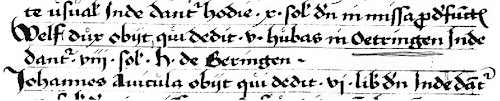 te usual Inde dant᷒ hodie · x · sol dn in missa p defunct
Welf dux obijt, qui dedit · v · hubas in Oetringen Inde
dant᷒ viii · sol · h · de Beringen ·
Johannes Auicula obijt qui dedit · vi · lib dn Inde dant᷒